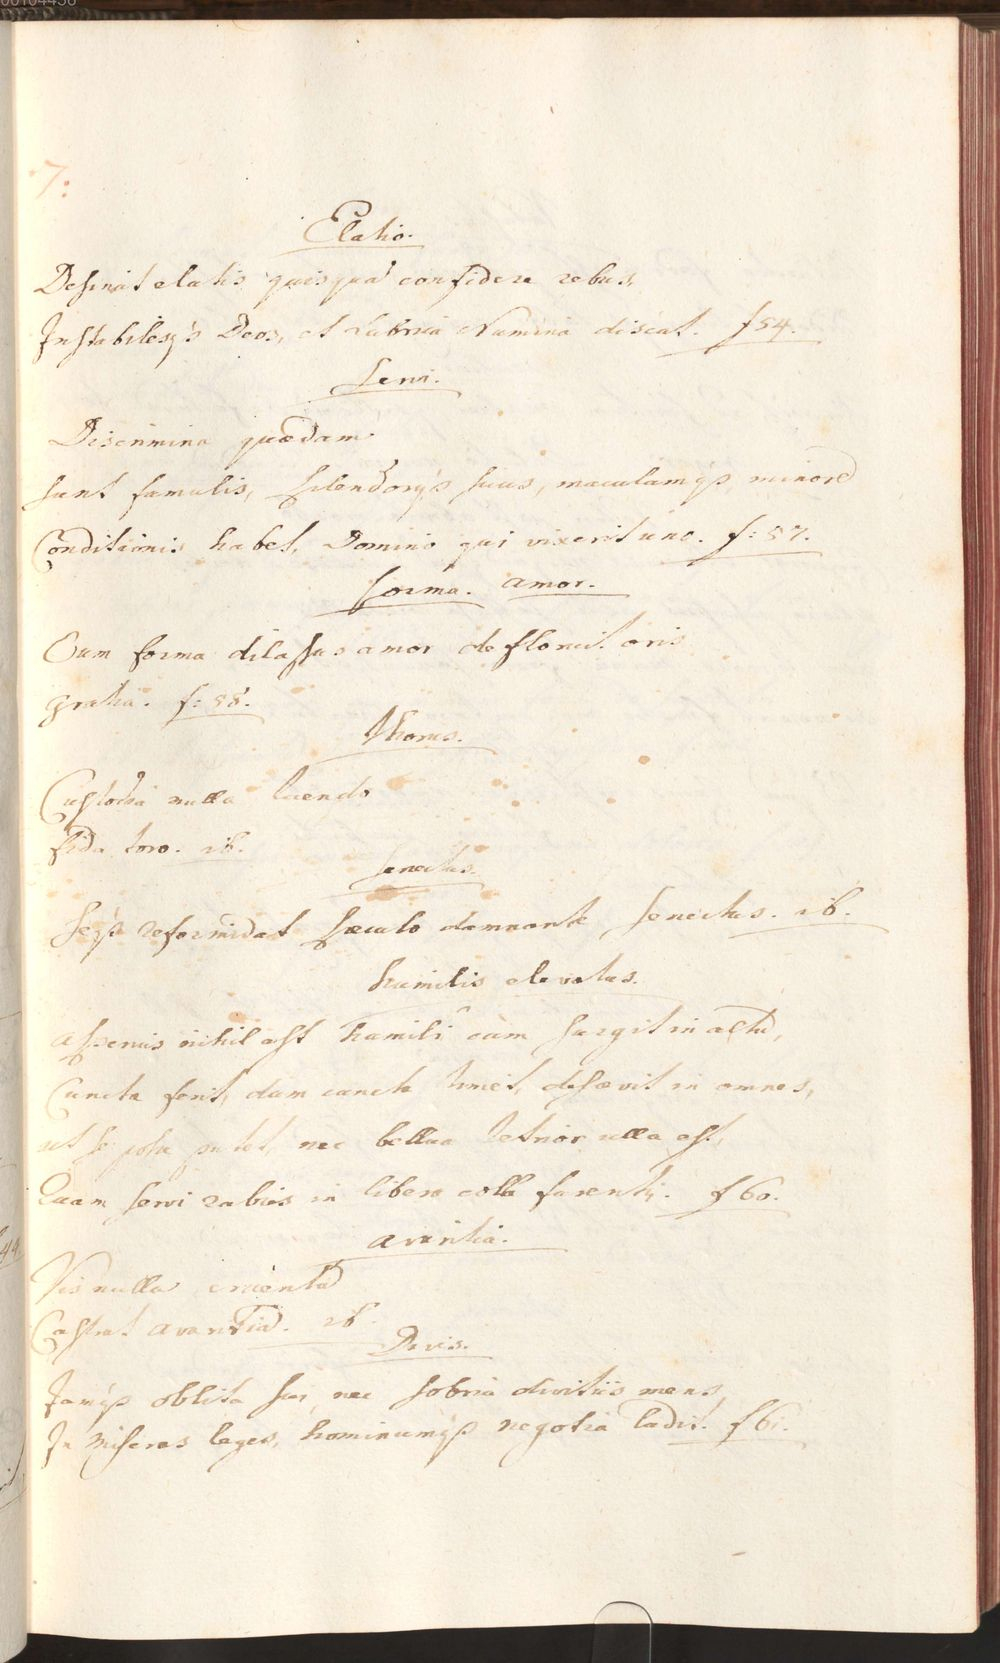 00104456
7:
Elatio.
Desinat elatis quisquā confidere rebus,
Instabilesq́₃ Deos, et Lubrica Numina discat. f 54.
Servi.
Discrimina quædam
sunt famulis, splendorq́₃ suus, maculamq́₃ minorē
Conditionis habet, Domino qui vixerit uno. f: 57.
forma. amor.
Cum forma dilapsus amor defloruit oris
gratia. f: 58.
Thorus.
Custodia nulla tuendo
fida toro. ib.
Senectus.
Seq́₃ reformidat sæculo damnante senectus. ib.
humilis elevatus.
asperius nihil est humili cùm surgit in altū,
Cuncta ferit, dum cuncta timet, desævit in omnes,
ut se posse putet, nec bellua tetrior ulla est,
Quam servi rabies in libera colla furentis. f 60.
avaritia.
Vis nulla cruentā
Castrat avaritiā. ib.
Dives.
Jamq́₃ oblita sui, nec sobria divitiis mens,
In miseras leges, hominumq́₃ negotia ludit. f 61.